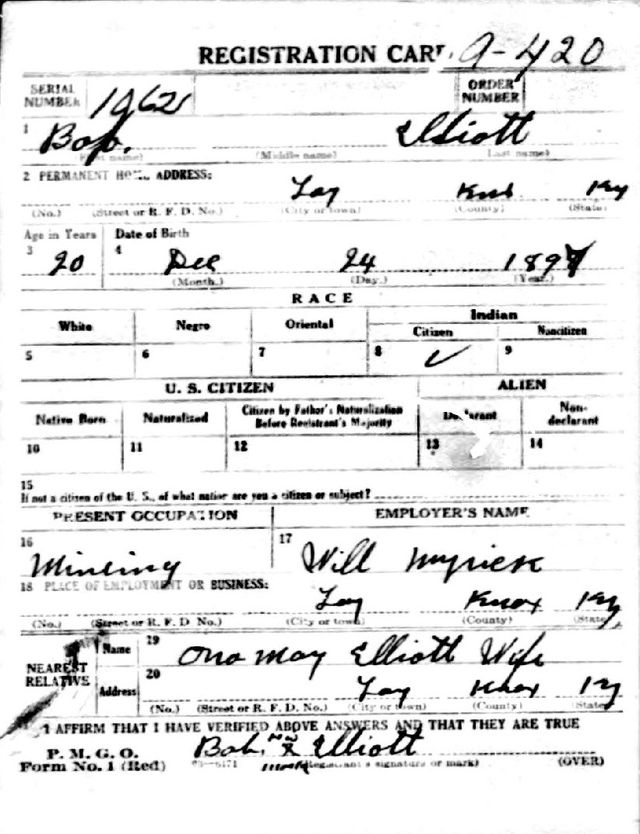 REGISTRATION CARD 9-420
SERIAL NUMBER 1962 ORDER NUMBER
1 Bob. Elliott
(First name) (Middle name) (Last name)
2 PERMANENT HOME ADDRESS:
Lay Knox Ky
(No.) (Street or R. F. D. No.) (City or town) (County) (State)
Age in Years Date of Birth
3 20 4 Dec 24 1897
(Month.) (Day.) (Year.)
RACE
White Negro Oriental Indian
Citizen Noncitizen
5 6 7 8 ✓ 9
U. S. CITIZEN ALIEN
Native Born Naturalized Citizen by Father's Naturalization Before Registrant's Majority Declarant Non-declarant
10 11 12 13 14
15
If not a citizen of the U. S., of what nation are you a citizen or subject?
PRESENT OCCUPATION EMPLOYER'S NAME
16 Mineing 17 Will Myrick
18 PLACE OF EMPLOYMENT OR BUSINESS:
Lay Knox Ky
(No.) (Street or R. F. D. No.) (City or town) (County) (State)
NEAREST RELATIVE Name 19 Ona May Elliott Wife
Address 20 Lay Knox Ky
(No.) (Street or R. F. D. No.) (City or town) (County) (State)
I AFFIRM THAT I HAVE VERIFIED ABOVE ANSWERS AND THAT THEY ARE TRUE
P. M. G. O.
Form No. 1 (Red) Bob x Elliott
mark (Registrant's signature or mark) (OVER)